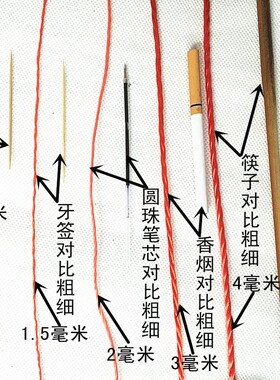 毫米
牙签对比粗细
1.5毫米
圆珠笔芯对比粗细
2毫米
香烟对比粗细
3毫米
筷子对比粗细
4毫米